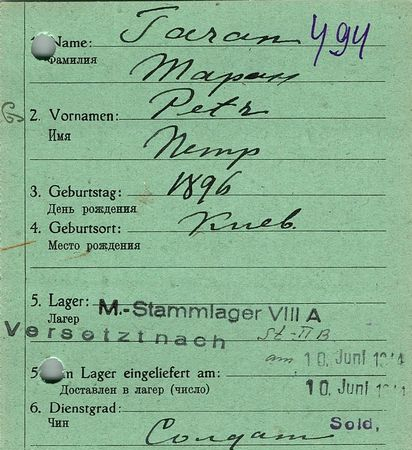 Name: Taran 494
Фамилия Таран
2. Vornamen: Petr
Имя Петр
3. Geburtstag: 1896
День рождения
4. Geburtsort: Киев.
Место рождения
5. Lager: M.-Stammlager VIII A
Лагер
Versetzt nach St-II B
am 10. Juni
Lager eingeliefert am: 10. Juni
Доставлен в лагер (число)
6. Dienstgrad: Sold,
Чин Солдат